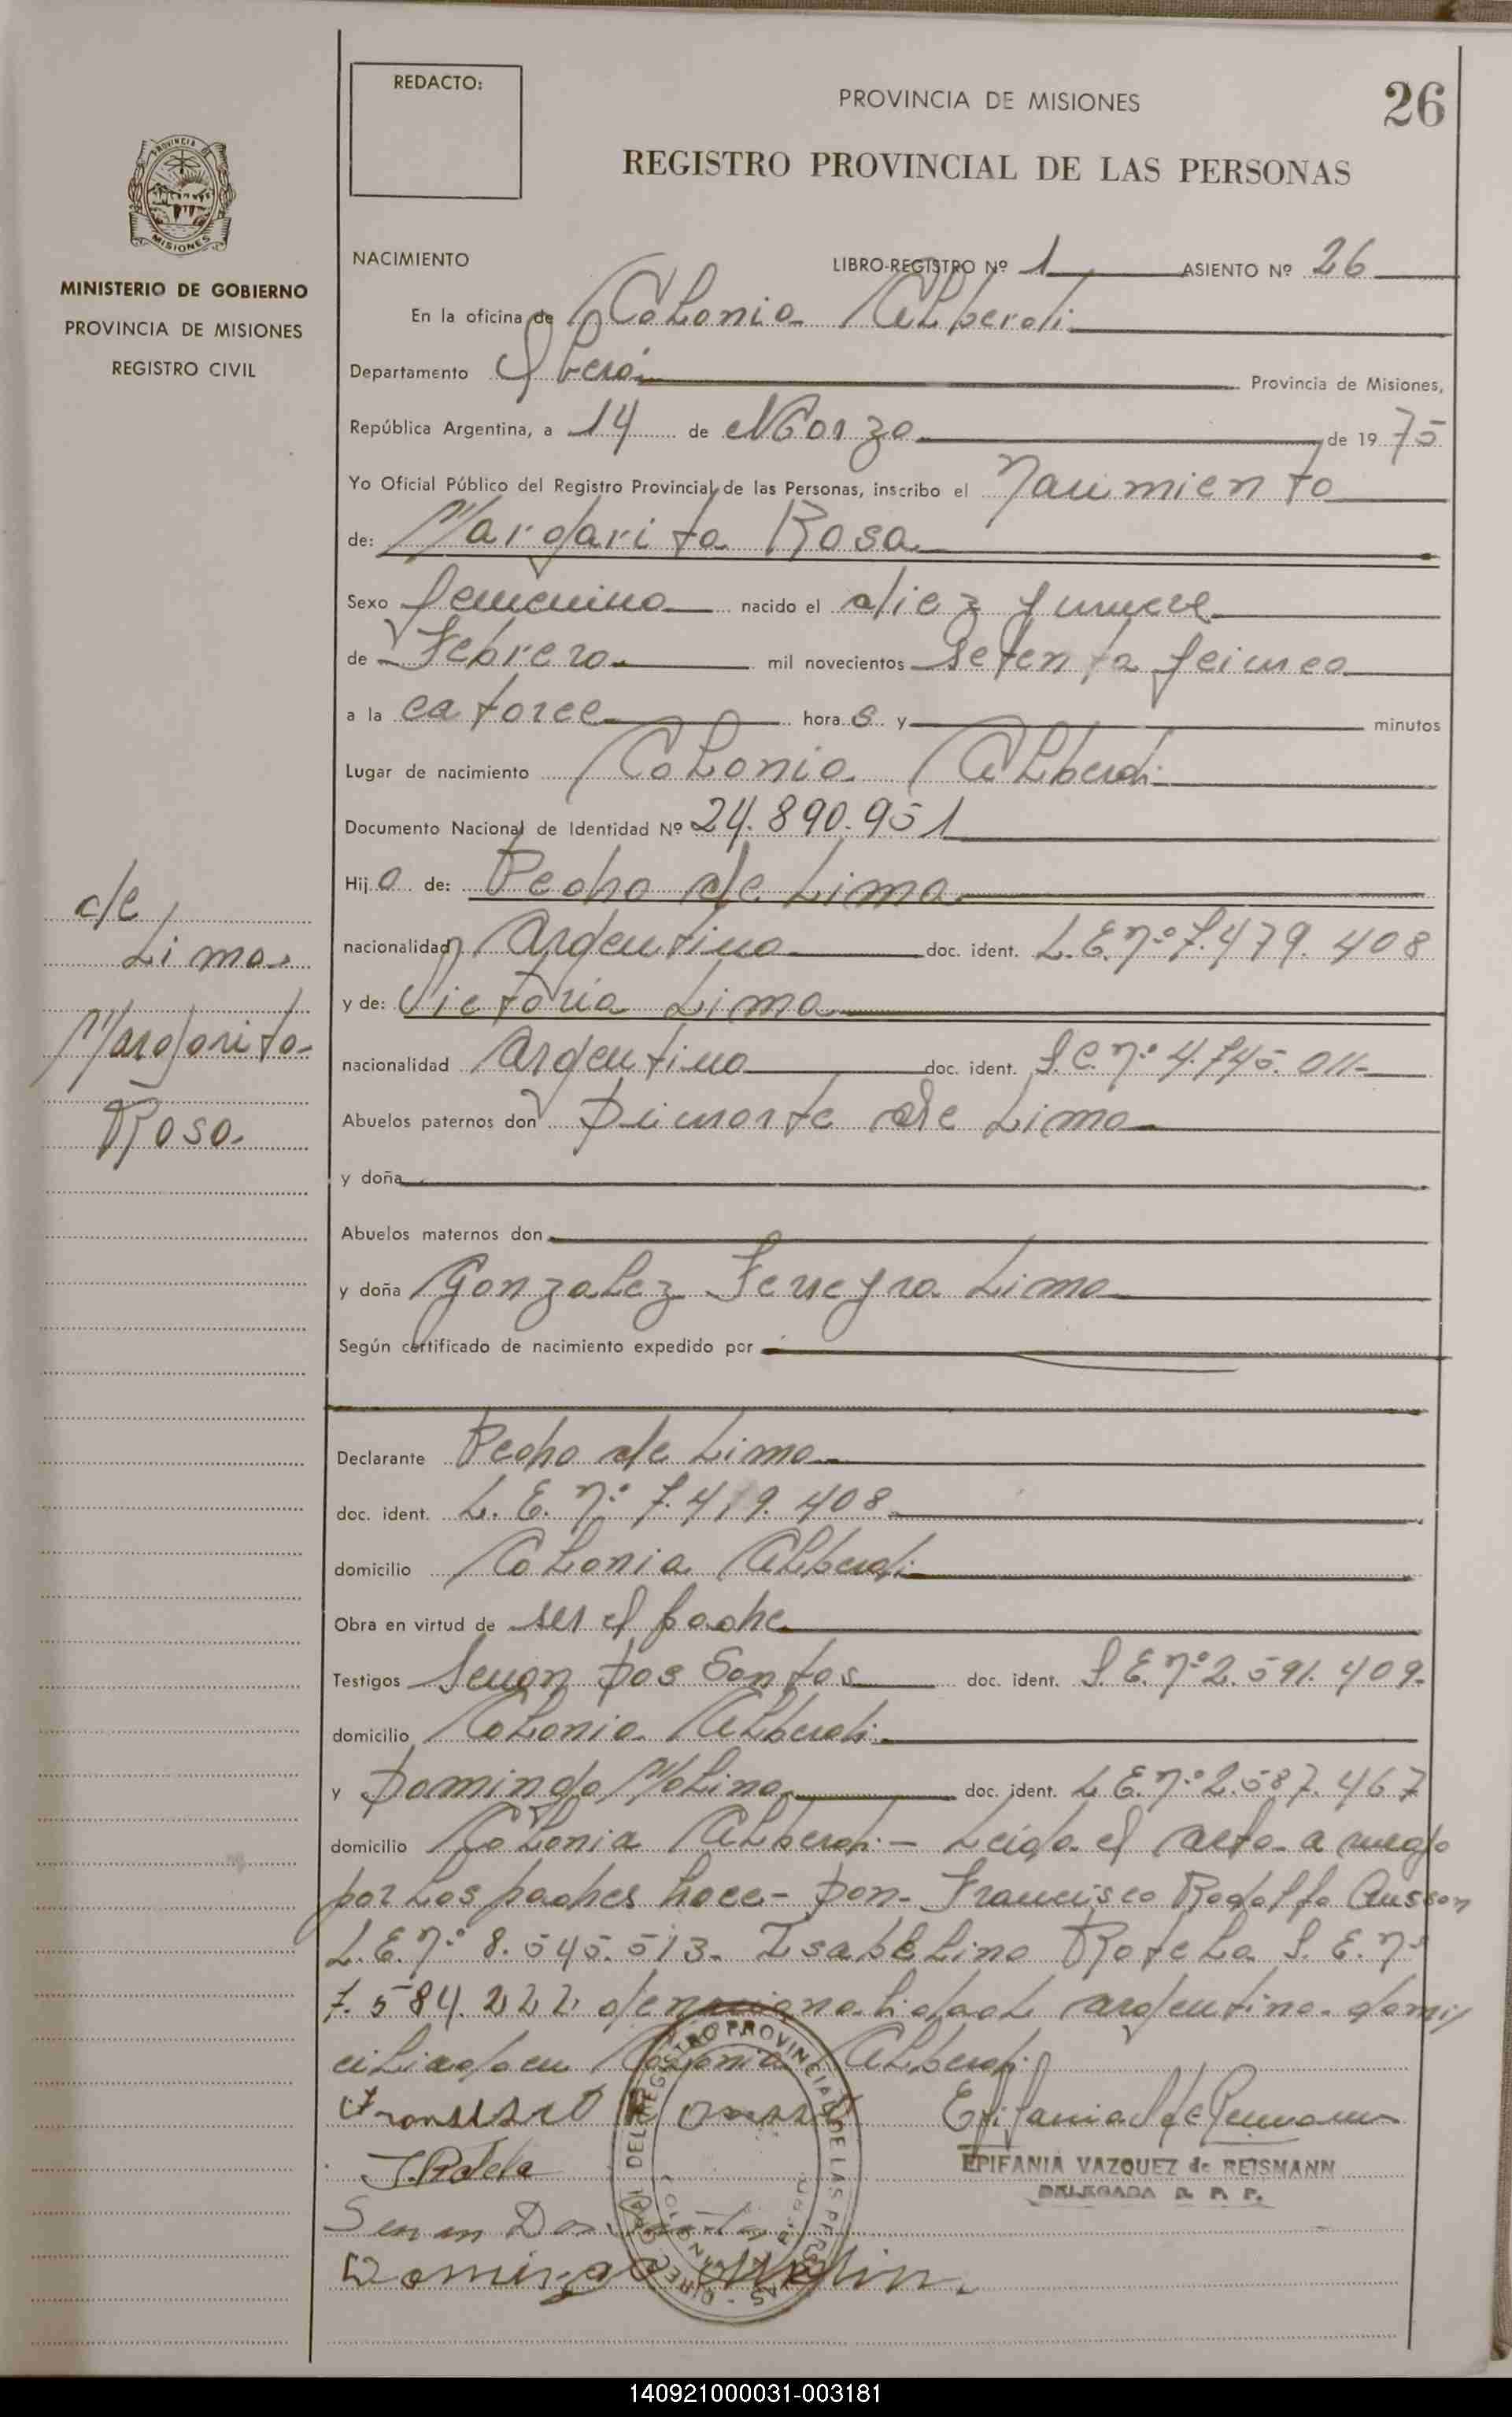 REDACTO:
PROVINCIA DE MISIONES
26
REGISTRO PROVINCIAL DE LAS PERSONAS
PROVINCIA DE
MISIONES
MINISTERIO DE GOBIERNO
PROVINCIA DE MISIONES
REGISTRO CIVIL
NACIMIENTO LIBRO-REGISTRO Nº 1 ASIENTO Nº 26
En la oficina de Colonia Alberdi
Departamento Oberá Provincia de Misiones,
República Argentina, a 14 de Marzo de 19 75
Yo Oficial Público del Registro Provincial de las Personas, inscribo el Nacimiento
de: Margarita Rosa
Sexo femenino nacido el diez y nueve
de Febrero mil novecientos setenta y cinco
a la catorce hora s y minutos
Lugar de nacimiento Colonia Alberdi
Documento Nacional de Identidad Nº 24.890.951
Hij a de: Pedro de Lima
nacionalidad Argentina doc. ident. L.E. nº 7.479.408
y de: Victoria Lima
nacionalidad Argentina doc. ident. L.C. nº 4.745.011-
Abuelos paternos don de Lima
y doña
Abuelos maternos don
y doña Gonzalez Lima
Según certificado de nacimiento expedido por
de
Lima
Margarita
Rosa
Declarante Pedro de Lima
doc. ident. L.E. nº 7.479.408
domicilio Colonia Alberdi
Obra en virtud de ser el padre
Testigos Senon Dos Santos doc. ident. L.E. nº 2.591.409-
domicilio Colonia Alberdi
y Domingo Molina doc. ident. L.E. nº 2.587.467
domicilio Colonia Alberdi - Leida el acta a ruego
por los padres hace - Don - Francisco Rodolfo
L.E. nº 8.545.513- Isabelino Rotela L.E. nº
7.584.222 de nacionalidad argentina domi
ciliado en Colonia Alberdi
Francisco
I. Rotela
EPIFANIA VAZQUEZ de REISMANN
DELEGADA R. P. P.
Senon Dos Santos
Domingo Molin
REGISTRO PROVINCIAL DE LAS PERSONAS - DIRECC. GRAL. DEL
140921000031-003181